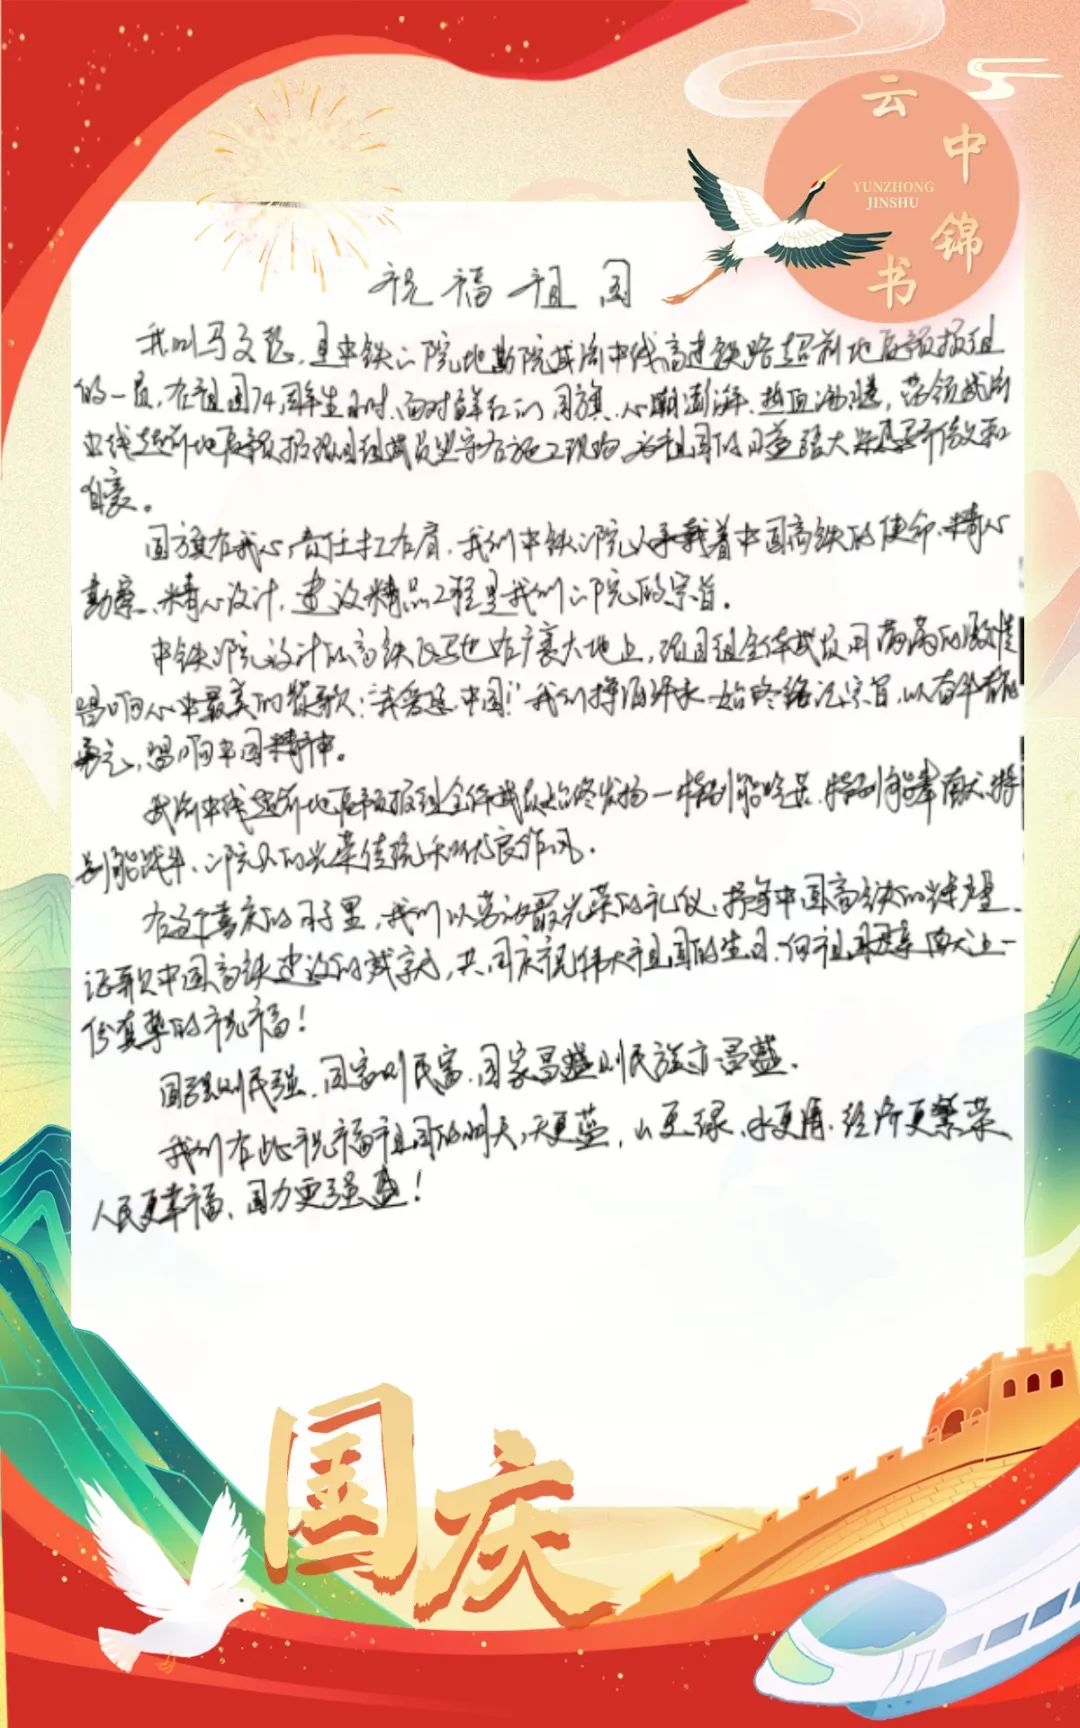 云中锦书
YUNZHONG
JINSHU
祝福祖国
我叫马文，是中铁二院地勘院成渝中线高速铁路超前地质预报组
的一员，在祖国74周年生日时，面对鲜红的国旗，心潮澎湃，热血沸腾，带领成渝
中线超前地质预报项目组成员坚守在施工现场，为祖国的日益强大感到骄傲和
自豪。
国旗在我心，责任扛在肩，我们中铁二院人承载着中国高铁的使命，精心
勘察、精心设计，建设精品工程是我们二院的宗旨。
中铁二院设计的高铁飞驰在广袤大地上，项目组全体成员用满满的激情
唱响心中最美的赞歌：“我爱您，中国！”我们始终铭记宗旨，以奋斗
唱响中国精神。
成渝中线超前地质预报组全体成员始终发扬特别能吃苦、特别能奉献、特
别能战斗、二院人的光荣传统和优良作风。
在这个喜庆的日子里，我们以劳动最光荣的礼仪，中国高铁的
讴歌中国高铁建设的成就，共同庆祝伟大祖国的生日，向祖国母亲献上一
份真挚的祝福！
国强则民强，国富则民富，国家昌盛则民族亦昌盛。
我们在此祝福祖国的明天，天更蓝，山更绿、水更清、经济更繁荣
人民更幸福、国力更强盛！
国庆